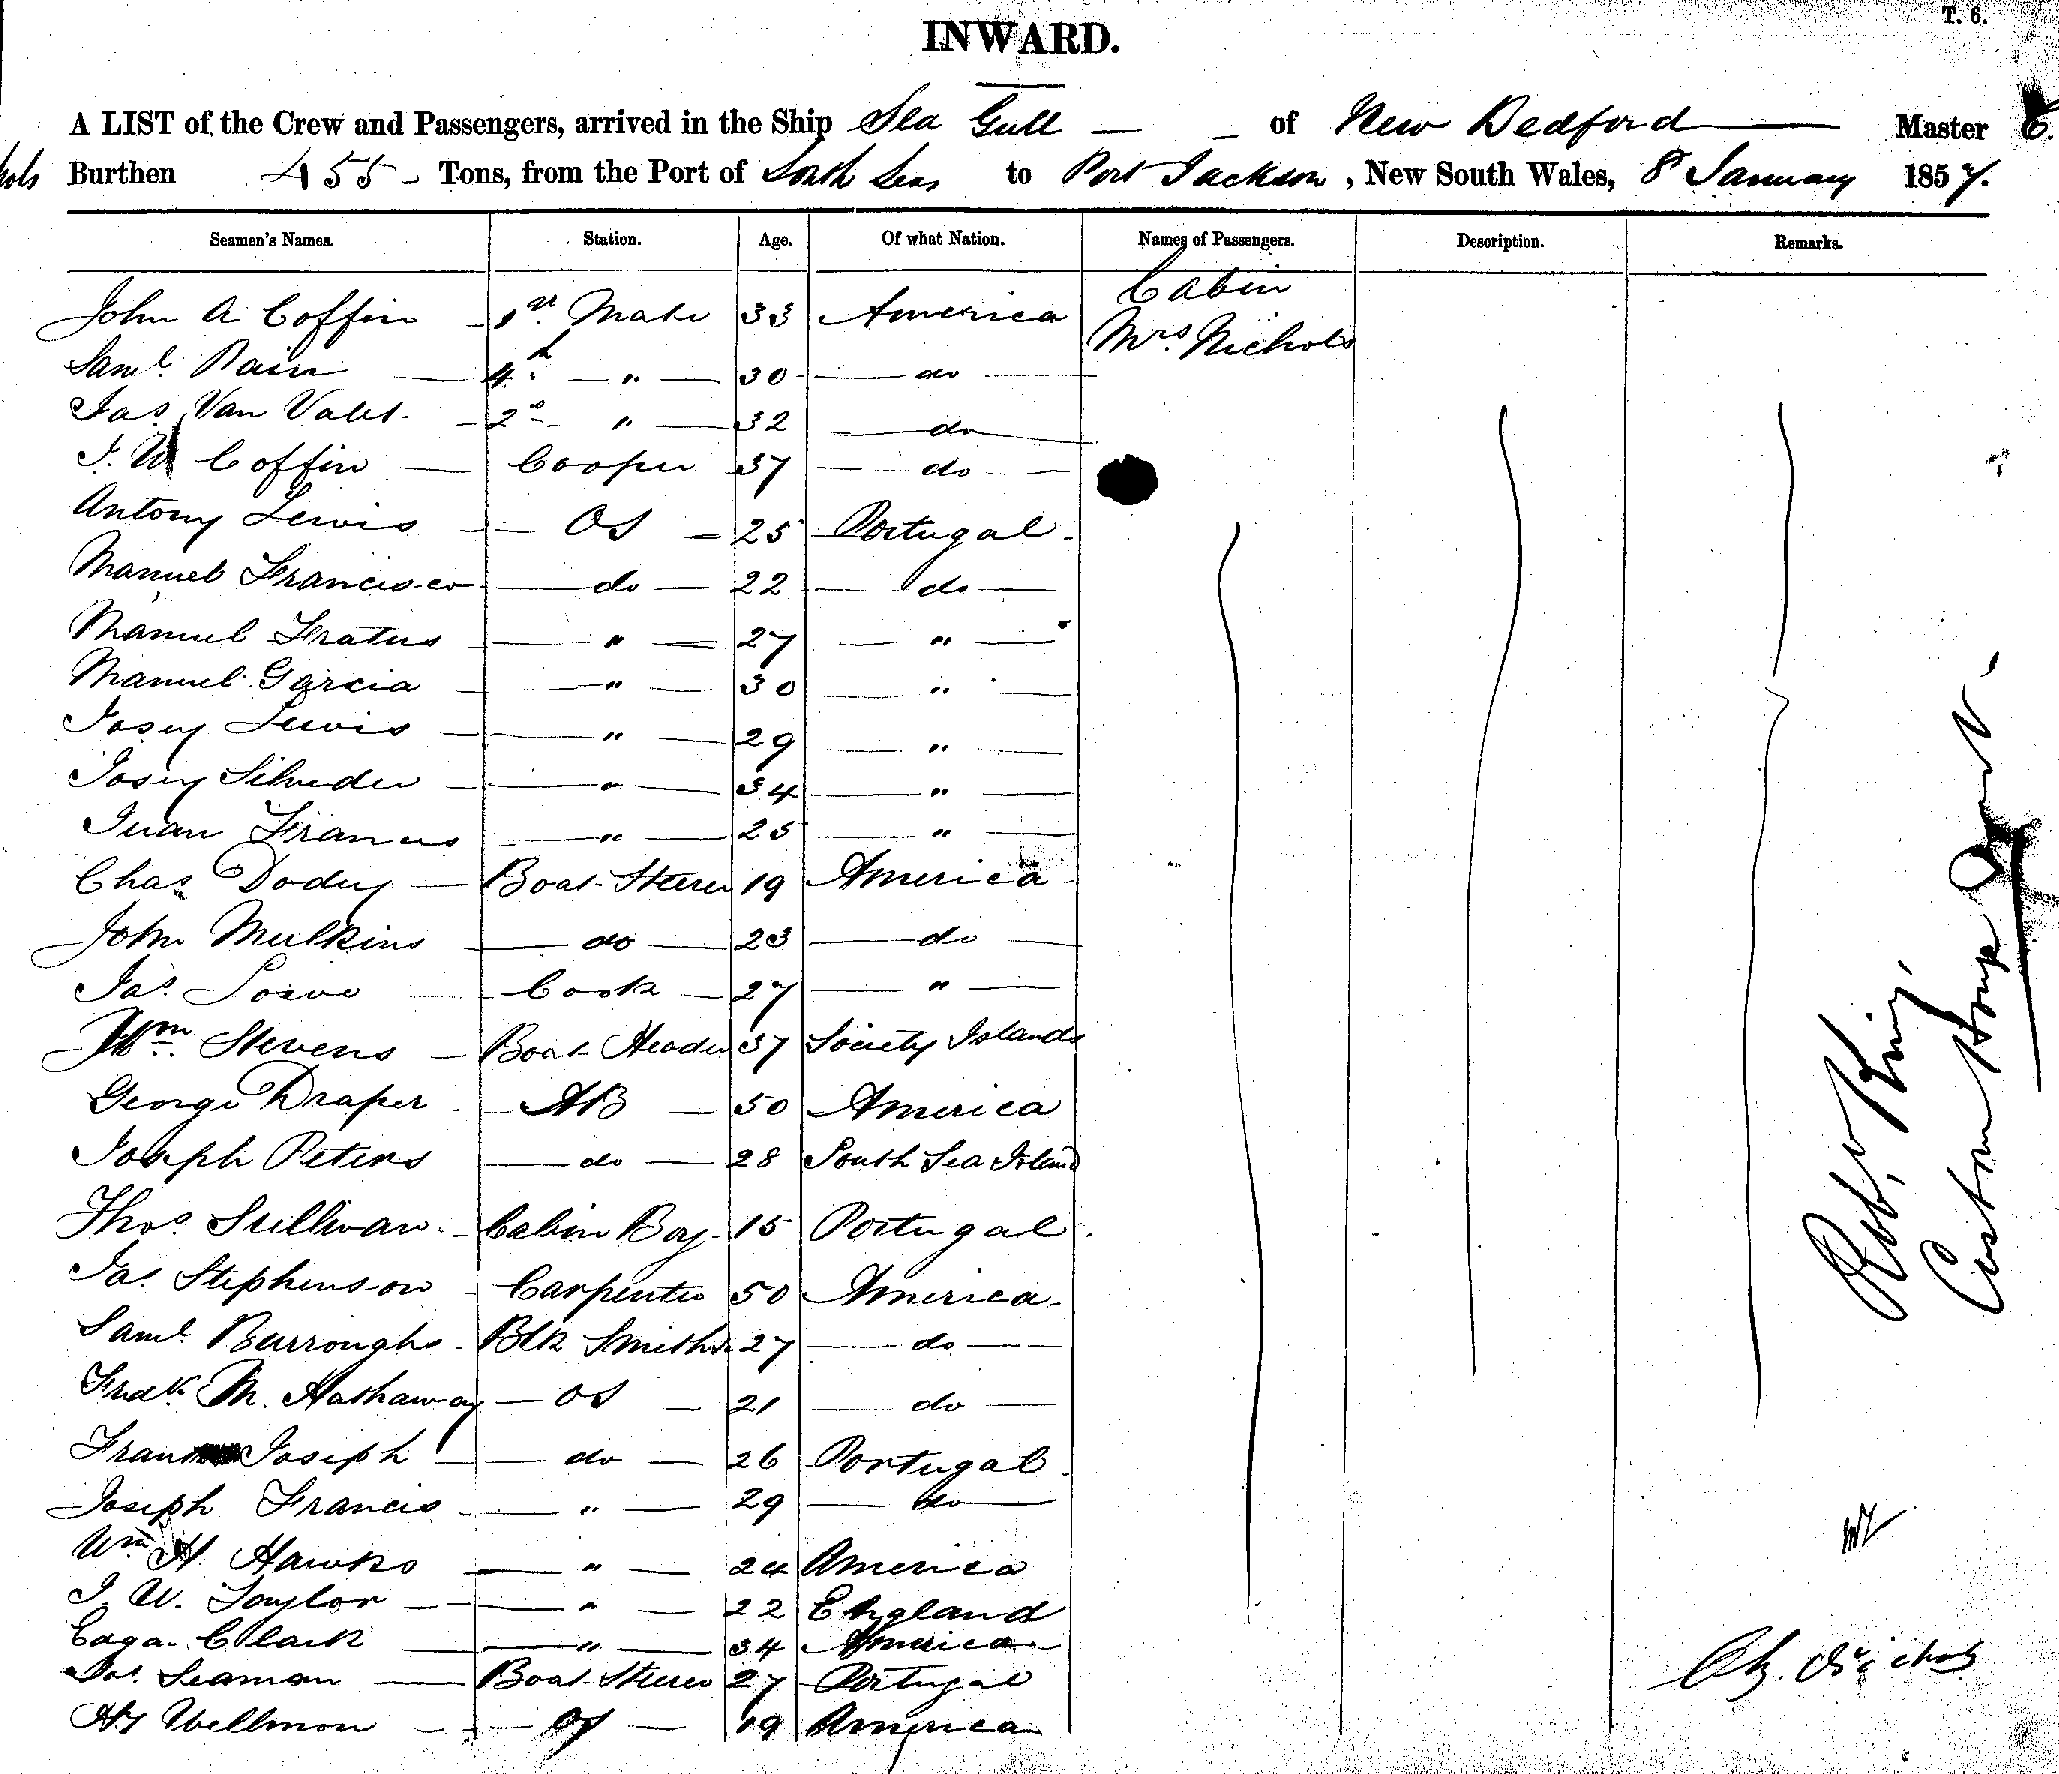 T. 6.
INWARD.
A LIST of the Crew and Passengers, arrived in the Ship Sea Gull — – of New Bedford — Master C.
hols Burthen 455 – Tons, from the Port of South Seas to Port Jackson, New South Wales, 8 January 1857.
Seamen's Names. Station. Age. Of what Nation. Names of Passengers. Description. Remarks.
Cabin
John A Coffin 1st Mate 33 America
Mrs Nichols
Saml. 4th " 30 do
Jas Van 2d " 32 do
J. W Coffin Cooper 37 do
Antony Lewis OS 25 Portugal
Manuel Francisco do 22 do
Manuel Fratus " 27 "
Manuel Garcia " 30 "
Josey Lewis " 29 "
Josey " 34 "
Juan Francis " 25 "
Chas Dody Boat Steerer 19 America
John Mulkins do 23 do
Jas. Cook 27 "
Wm. Stevens Boat Header 37 Society Islands
George Draper AB 50 America
Joseph Peters do 28 South Sea Island
Thos Sullivan Cabin Boy 15 Portugal
Jas. Stephenson Carpenter 50 America
Saml. Burroughs Blk Smith 27 do
Fredk M. Hathaway OS 21 do
Joseph do 26 Portugal
Joseph Francis " 29 do
Wm H. Hawks " 24 America
J. W. Taylor " 22 England
Clark " 34 America
Seaman Boat Steerer 27 Portugal
Hy Wellmon OS 19 America
Robt. King,
Custom House
Nichols